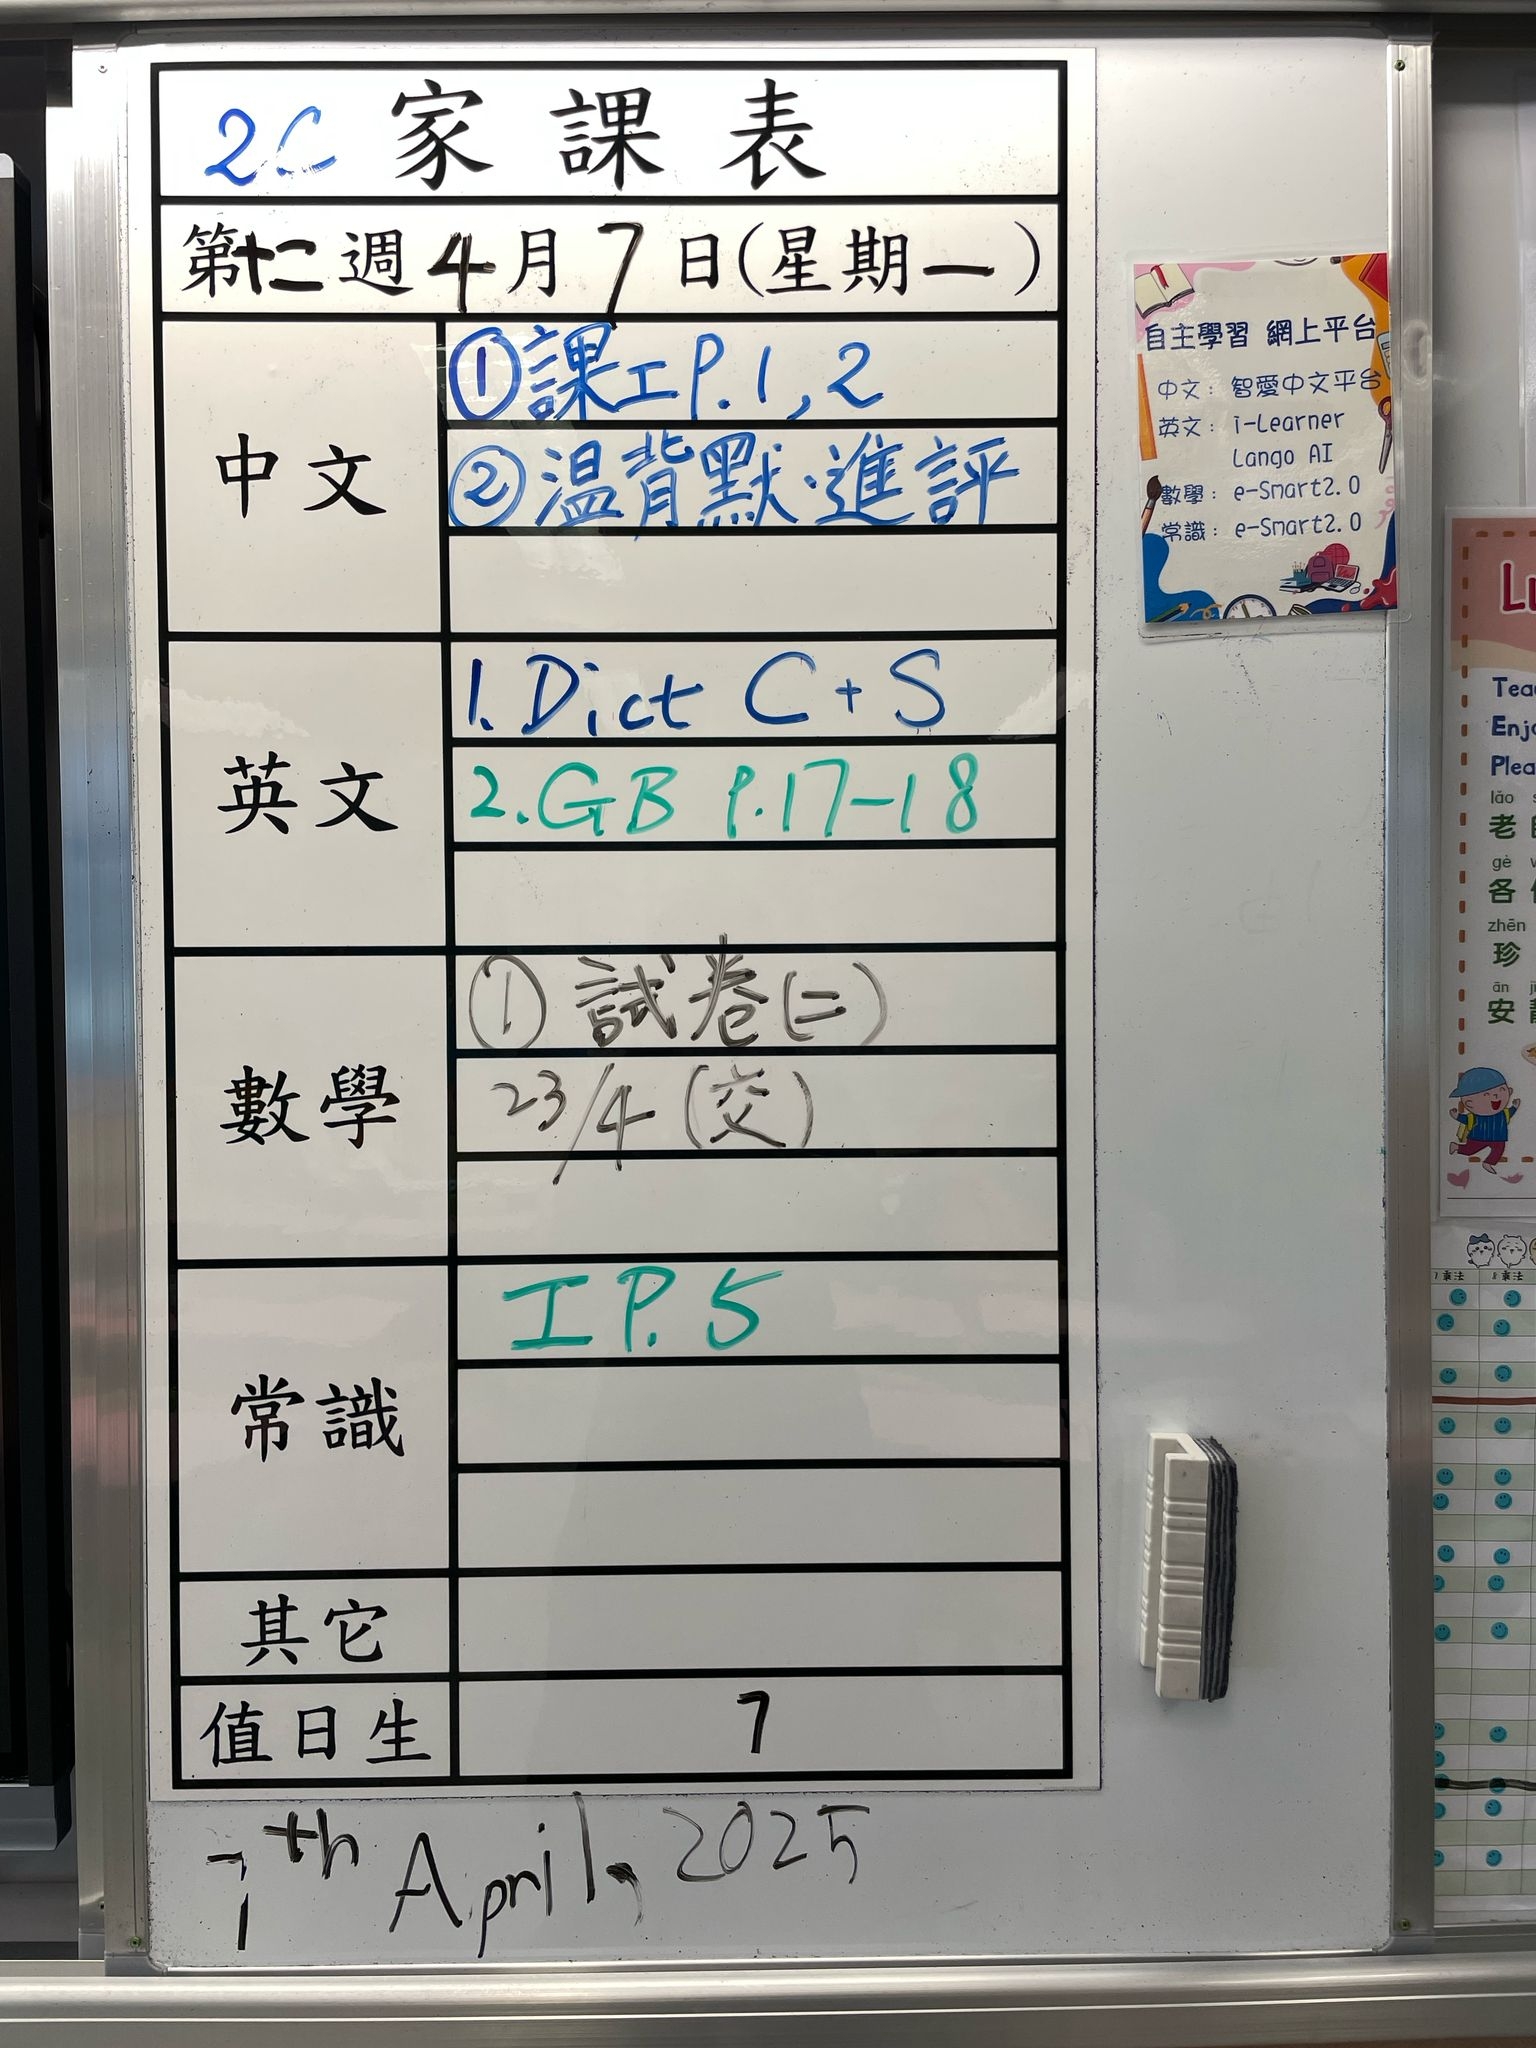 2C 家課表
第十二週4月7日(星期一)
中文
①課工P.1,2
②温背默.進評
英文
1.Dict C+S
2.GB P.17-18
數學
①試卷(二)
23/4(交)
常識
工P.5
其它
值日生
7
7th April, 2025
自主學習 網上平台
中文：智愛中文平台
英文：i-Learner
Lango AI
數學：e-Smart2.0
常識：e-Smart2.0
Enj
Plea
lǎo
老
gè
各
zhēn
珍
ān
安
乘法
8乘法